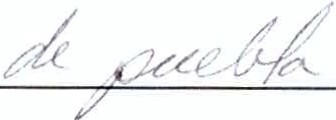 de puebla